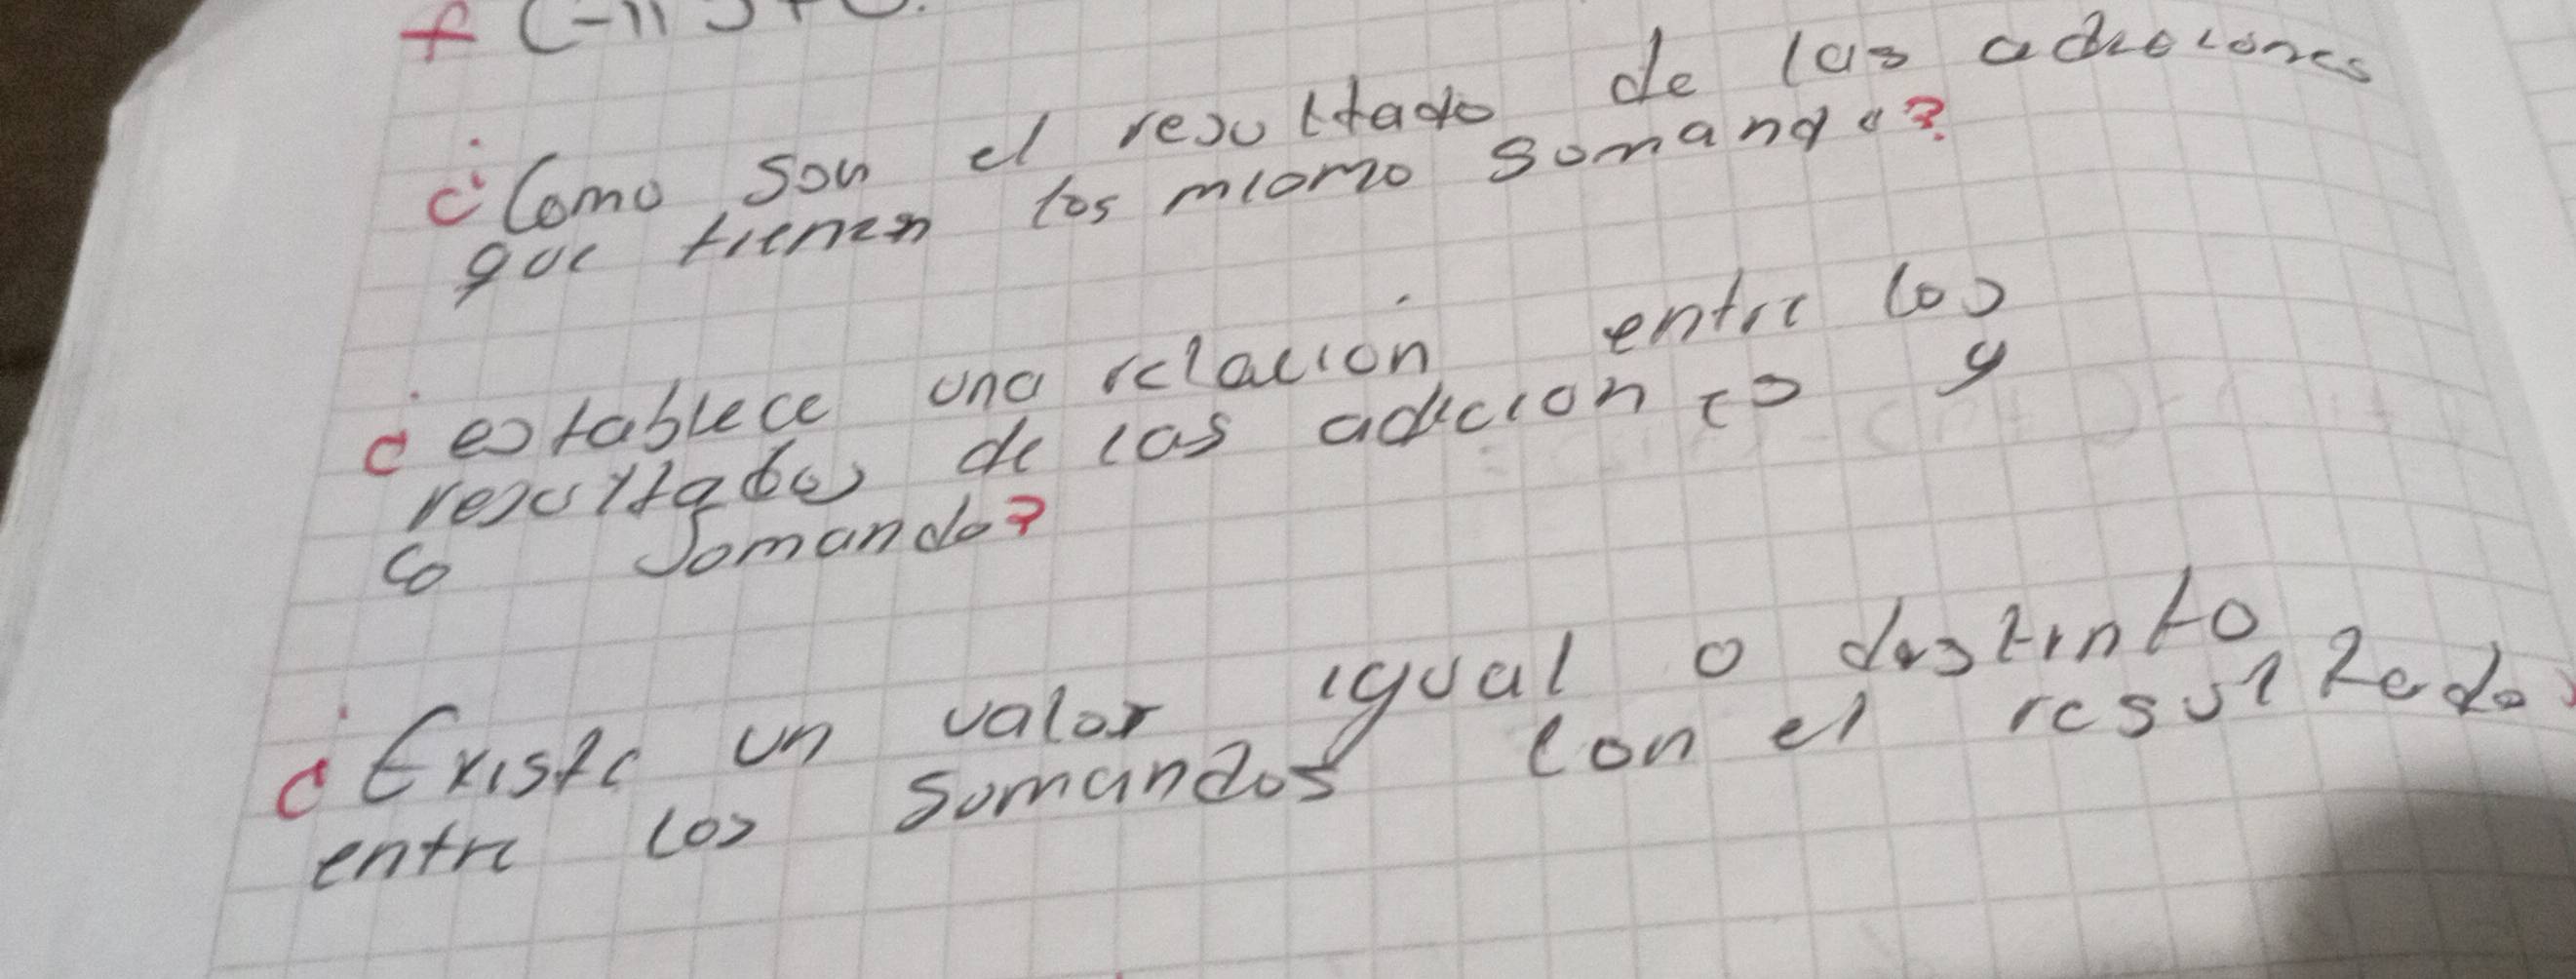 f (-11
¿Como son el resultado de las adiciones
que tienen los mismo sumando?
¿establece una relación entre los
resultados de las adiciones y
so sumando?
¿Existe un valor igual o distinto
entre los sumandos con el resultado?